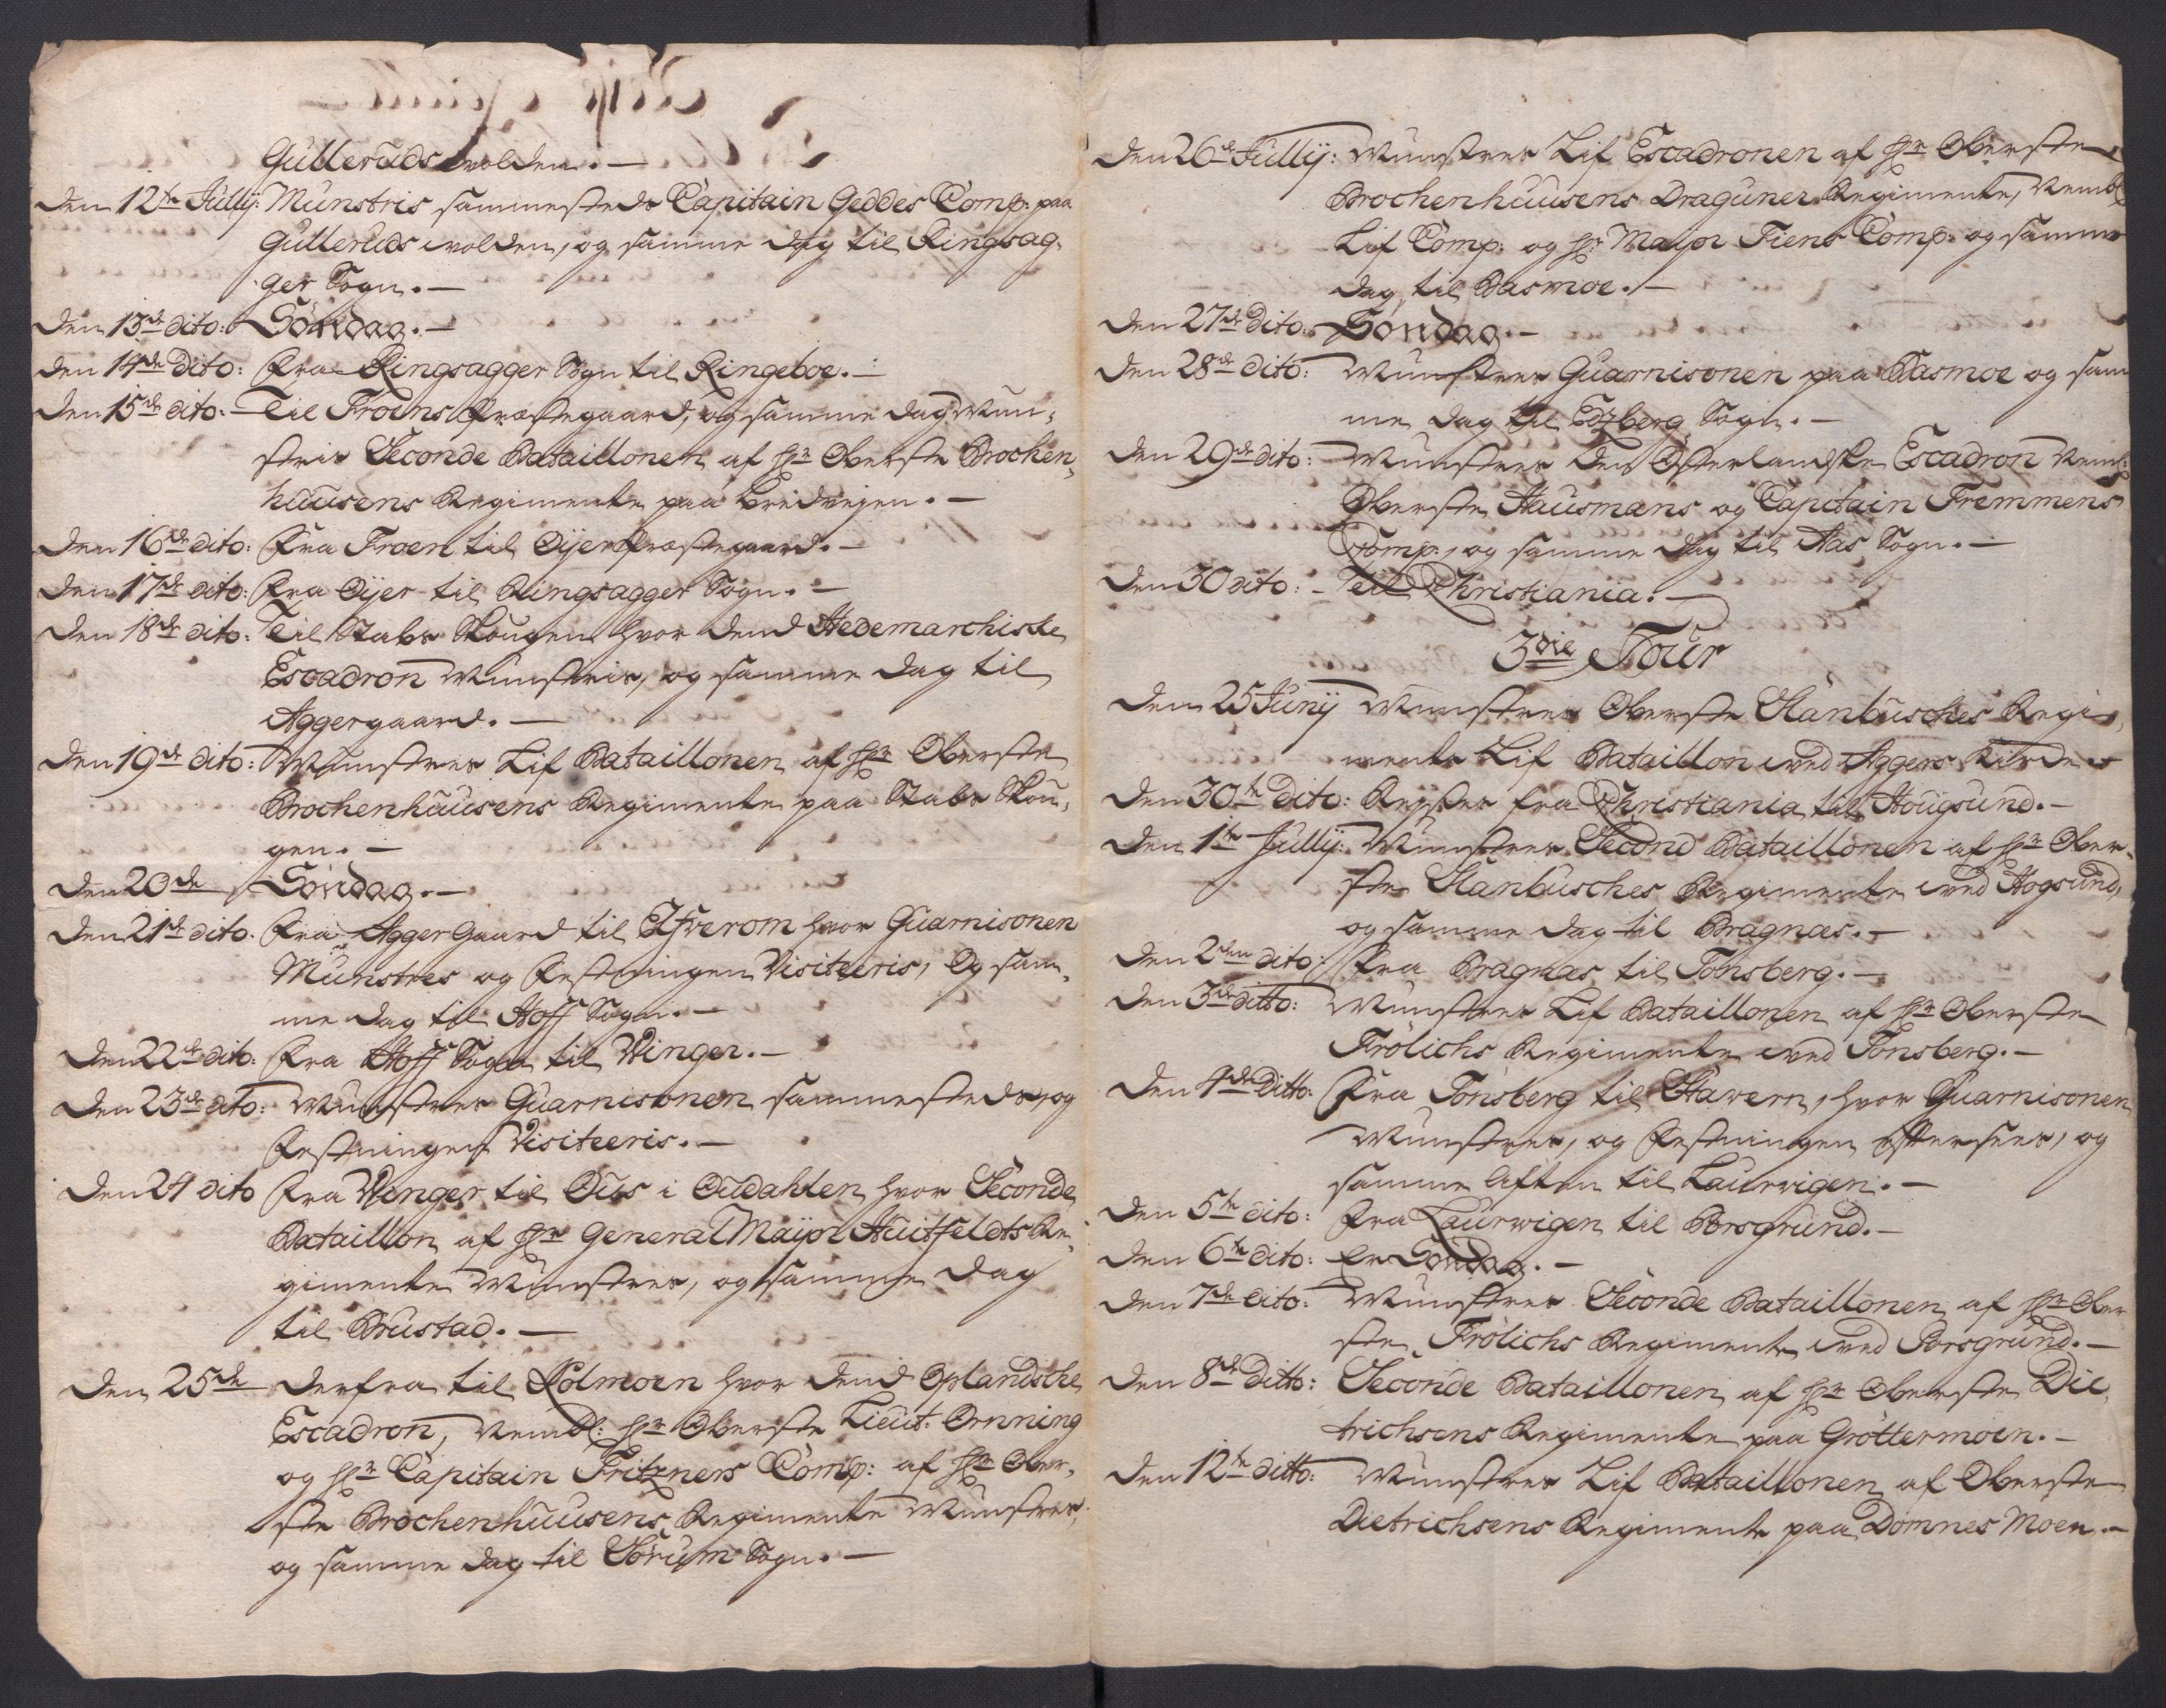 Gulleruds wolden. —
Den 12te Jullÿ: Munstris sammesteds Capitain Geddes Comp: paa
Gulleruds wolden, og samme dag til Ringsag,
ger Sogn. —
Den 13de dito: Söndag. —
Den 14de dito: Fra Ringsagger Sogn til Ringeboe. —
Den 15de dito: Til Froens Præstegaard, og samme dag Mun,
stris Seconde Bataillonen af Hr Oberste Brochen,
huusens Regimente paa bredvejen. —
Den 16de dito: Fra Froen til Oijer Præstegaard. —
Den 17de dito: Fra Oijer til Ringsagger Sogn. —
Den 18de dito: Til Stabs Skougen hvor dend Hedemarchiske
Escadron Munstris, og samme dag til
Aggergaard. —
Den 19de dito: Munstres Lif Bataillonen af Hr Oberste
Brochenhuusens Regimente paa Stabs Skou,
gen. —
Den 20de Söndag. —
Den 21de dito. Fra Agger Gaard til Elfverom hvor Guarnisonen
Munstres og Festningen Visiteeris, Og sam,
me dag til Hoff Sogn. —
Den 22de dito: Fra Hoff Sogn til Winger. —
Den 23de dito: Munstres Guarnisonen sammesteds, og
Festningen Visiteeris. —
Den 24 dito Fra Winger til Ous i Oudahlen hvor Seconde
Bataillon af Hr General Majior Huitfeldts Re,
gimente Munstres, og samme dag
til Brustad. —
Den 25de derfra til Kolmoen hvor dend Oplandske
Escadron, Nembl: Hr Oberste Lieut: Ornning
og Hr Capitain Fritzners Comp: af Hr Ober,
ste Brochenhuusens Regimente Munstres,
og samme dag til Sörum Sogn. —
Den 26de Jullÿ: Munstres Lif Escadronen af Hr Oberste
Brochenhuusens Draguner Regimente, Nembl
Lif Comp: og Hr Major Fiens Comp: og samme
dag til Basmoe. —
Den 27de dito: Söndag. —
Den 28de dito: Munstres Guarnisonen paa Basmoe og sam
me dag til Edzberg Sogn. —
Den 29de dito: Munstres den Österlandske Escadron Neml:
Oberste Hausmans og Capitain Fremmens
Comp:, og samme dag til Aas Sogn. —
Den 30 dito: — Til Christiania. —
3die Tour
Den 25 Junÿ Munstres Oberste Stanbusches Regi,
mente Lif Bataillon wed Aggers Kirke
Den 30te dito: Rejstes fra Christiania til Hougsund. —
Den 1te Jullÿ: Munstres Second Bataillonen af Hr Ober,
ste Stanbusches Regimente wed Hogsund,
og samme dag til Bragnæs. —
Den 2den dito: Fra Bragnæs til Tonsberg. —
Den 3de ditto: Munstres Lif Bataillonen af Hr Oberste
Frölichs Regimente wed Tonsberg. —
Den 4de Ditto: Fra Tonsberg til Stawern, hvor Guarnisonen
Munstres, og Festningen Eftersees, og
samme Aften til Laurwigen. —
Den 5te dito: Fra Laurwigen til Borsgrund. —
Den 6te dito: Er Söndag. —
Den 7de dito: Munstres Seconde Bataillonen af Hr Ober
ste Frölichs Regimente wed Porsgrund. —
Den 8de Ditto: Seconde Bataillonen af Hr Oberste Die,
trichsens Regimente paa Gröttermoen. —
Den 12te ditto: Munstres Lif Bataillonen af Oberste
Dietrichsens Regimente paa Domnes Moen. —